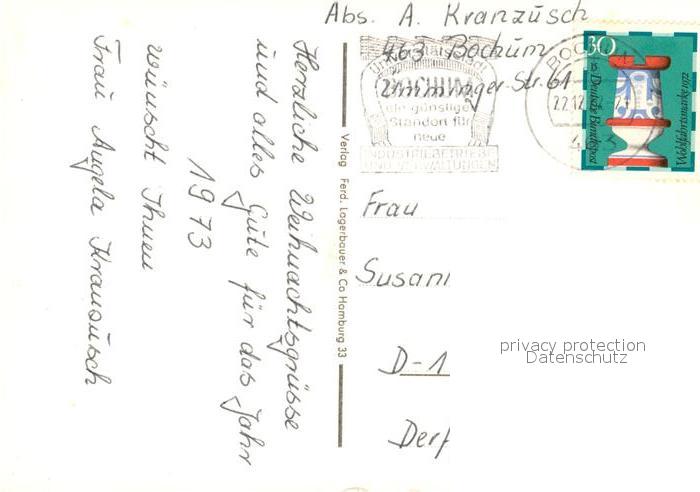 Abs. A. Kranzusch
463 Bochum
Ümminger-Str. 61
Universitätsstadt
BOCHUM
ein günstiger
Standort für
neue
INDUSTRIEBETRIEBE
UND VERWALTUNGEN
BOCHUM
22.12.72-21
30
+15 Deutsche Bundespost
Wohlfahrtsmarke 1972
Herzliche Weihnachtsgrüsse
und alles Gute für das Jahr
1973
wünscht Ihnen
Frau Angela Kranzusch
Verlag Ferd. Lagerbauer & Co Hamburg 33
Frau
Susan
D-1
Der
privacy protection
Datenschutz